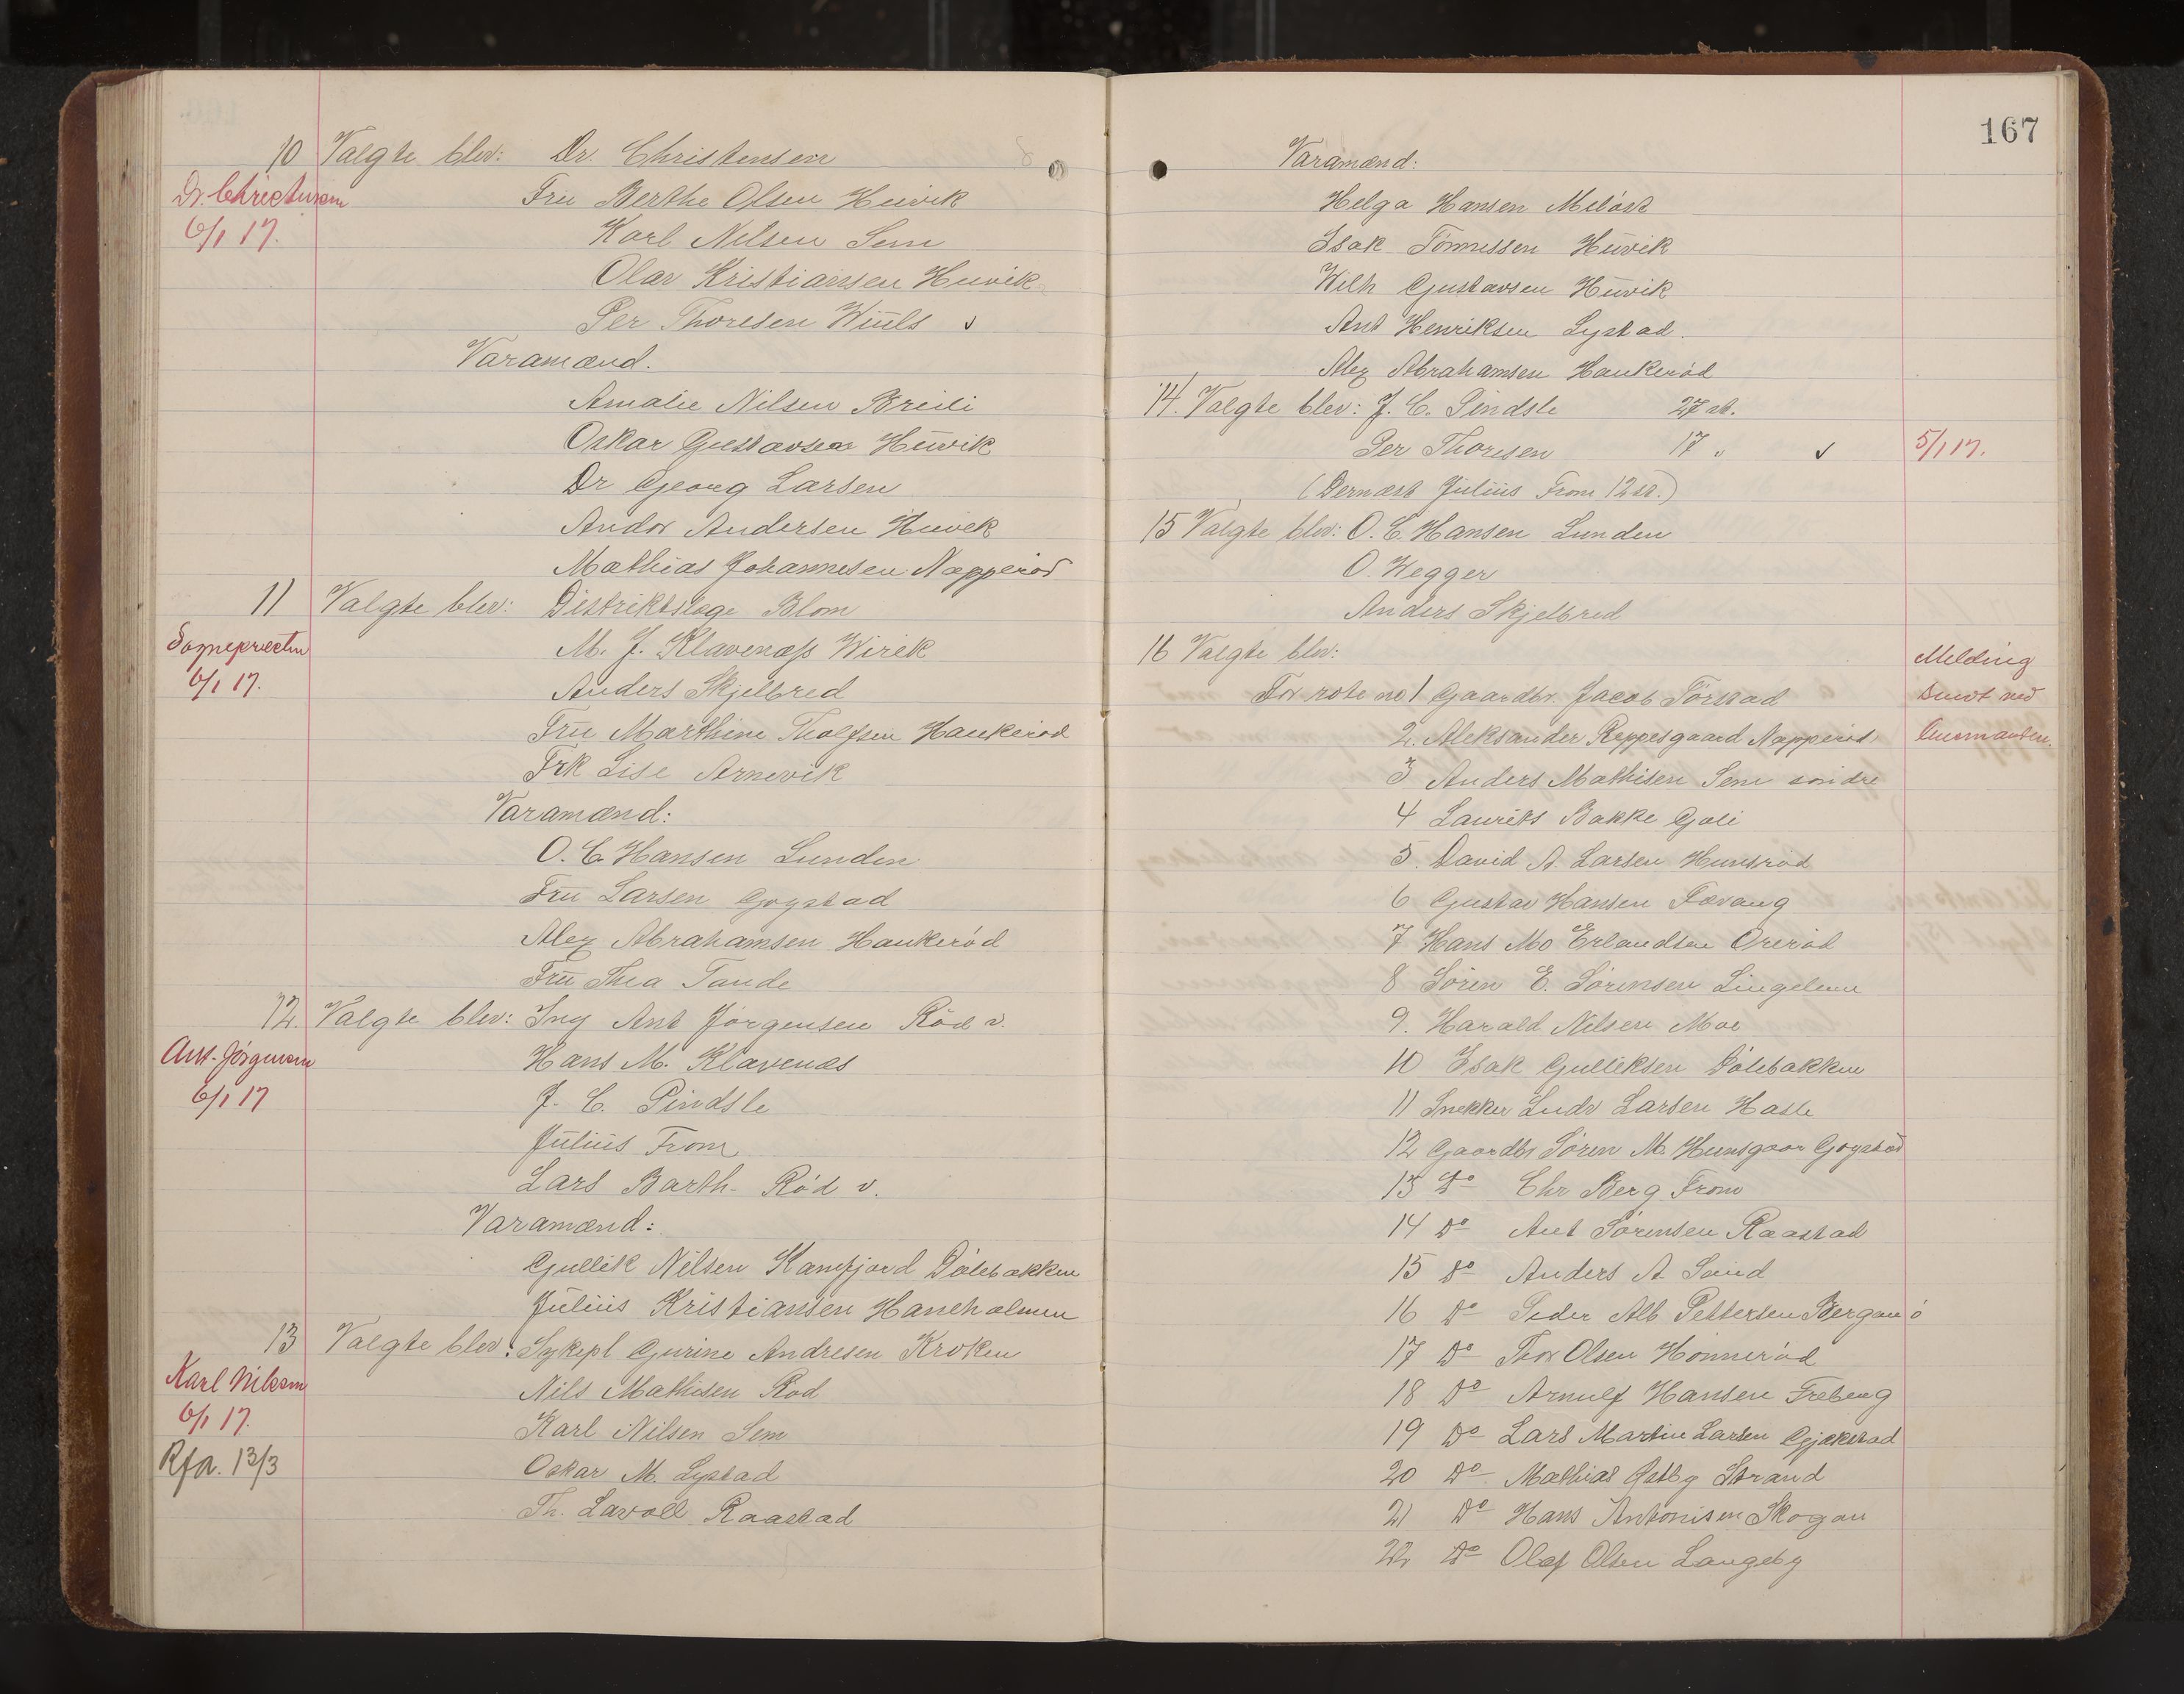 10 Valgte blev: Dr. Christensen
Dr. Christensen
6/1 17.
Fru Berthe Olsen Huvik
Karl Nilsen Sem
Olav Kristiansen Huvik
Per Thoresen
Varamænd.
Amalie Nilsen Breili
Oskar Gustavsen Huvik
Dr Georg Larsen
Andor Andersen Huvik
Mathias Johannesen Napperød
11 Valgte blev: Distriktslæge Blom
Sognepresten
6/1 17.
M. J. Klavenæss Wirik
Anders Skjelbred
Fru Marthine Tholfsen Haukerød
Frk Lise Arnevik
Varamænd:
O. C. Hansen Lunden
Fru Larsen Gogstad
Alex Abrahamsen Haukerød
Fru Thea Tande
12. Valgte blev: Ing Ant Jørgensen Rød v.
Ant. Jørgensen
6/1 17
Hans M. Klavenæs
J. C. Pindsle
Julius From
Lars Barth- Rød v.
Varamænd:
Gullik Nilsen Kamfjord Dølebakken
Julius Kristiansen Haneholmen
13 Valgte blev: Sykepl Gurine Andresen Kroken
Karl Nilsen
6/1 17.
Rfa. 13/3
Nils Mathisen Rød
Karl Nilsen Sem
Oskar M. Lystad
Th. Lavoll Raastad
167
Varamænd:
Helga Hansen Meløst
Isak Tønnessen Huvik
Wilh Gustavsen Huvik
Ant Henriksen Lystad.
Alex Abrahamsen Haukerød
14. Valgte blev: J. C. Pindsle 27 st.
Per Thoresen 17 " 5/1 17.
(Dernæst Julius From 12 st.)
15 Valgte blev: O. C. Hansen Lunden
O. Hegger
Anders Skjelbred
16 Valgte blev:
Melding
sendt ved
For rote no 1 Gaardbr. Jacob Tørstad
2. Aleksander Reppesgaard Napperød
3 Anders Mathisen Sem søndre
4 Laurits Bakke Goli
5. David A. Larsen Hunsrød
6 Gustav Hansen Fevang
7 Hans Mo Erlandsen Orerød
8 Søren E. Sørensen Lingelem
9. Harald Nilsen Moe
10 Isak Gulliksen Dølebakken
11 Snekker Ludv Larsen Hasle
12 Gaardbr Søren M. Hunsgaar Gogstad
13 Do Chr Berg From
14 Do Ant Sørensen Raastad
15 Do Anders A. Sand
16 Do Peder Alb Pettersen Bergan ø
17 Do Thor Olsen Hønnerød
18 Do Arnulf Hansen Freberg
19 Do Lars Martin Larsen Gjekstad
20 Do Mathias Østby Strand
21 Do Hans Antonisen Skogan
22 Do Olaf Olsen Langeby